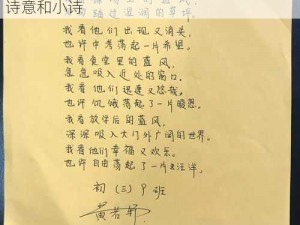 诗意和小诗
我看他们出现又消失
也许中考荡起一片希望。
我看食堂里的蓝风，
急急吸入近处的窗口，
我看他们逗趣又怒哉，
也许饥饿荡起了一片暖意。
我看放学后的蓝风，
深深吸入大门外广阔的世界。
我看他们幸福又欢乐。
也许自由荡起了一片汪洋。
初(三)9班
黄若轩